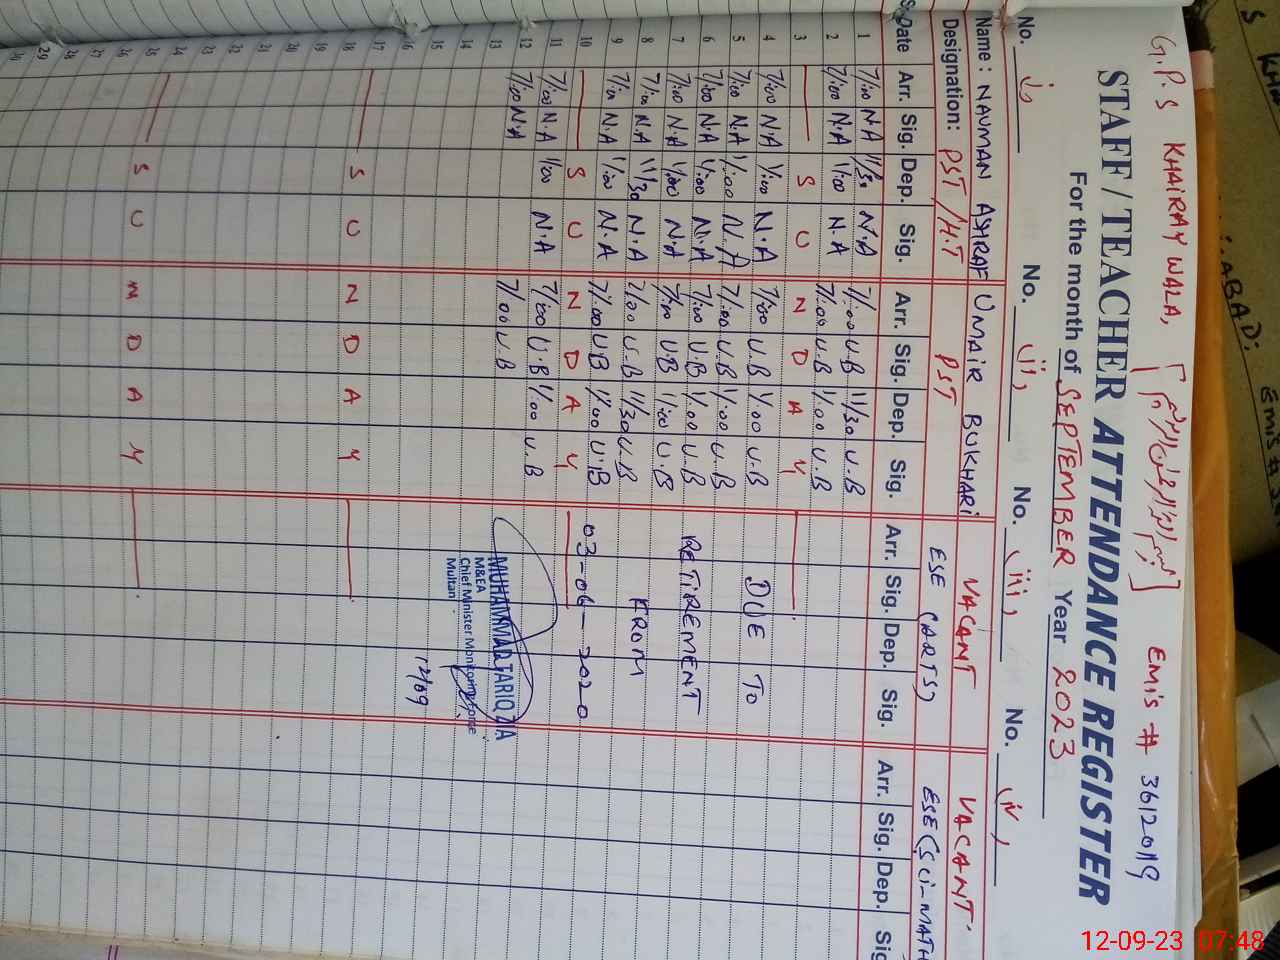 G.P.S KHAIRAY WALA, EMIS # 36120119
STAFF / TEACHER ATTENDANCE REGISTER
For the month of SEPTEMBER Year 2023
No. i, No. ii, No. iii, No. iv,
Name : NAUMAN ASHRAF UMAIR BUKHARI VACANT VACANT
Designation: PST/H.T PST ESE (ARTS) ESE (SCI-MATH
Date Arr. Sig. Dep. Sig. Arr. Sig. Dep. Sig. Arr. Sig. Dep. Sig. Arr. Sig. Dep.
1 7/:00 N.A 11/30 N.A 7/:00 U.B 11/30 U.B
2 7/:00 N.A 1/:00 N.A 7/:00 U.B 1/:00 U.B
3 S U N D A Y
4 7/:00 N.A 1/:00 N.A 7/:00 U.B 1/:00 U.B DUE TO
5 7/:00 N.A 1/:00 N.A 7/:00 U.B 1/:00 U.B
6 7/:00 N.A 1/:00 N.A 7/:00 U.B 1/:00 U.B RETIREMENT
7 7/:00 N.A 1/:00 N.A 7/:00 U.B 1/:00 U.B
8 7/:00 N.A 11/30 N.A 7/:00 U.B 11/30 U.B FROM
9 7/:00 N.A 1/:00 N.A 7/:00 U.B 1/:00 U.B
10 S U N D A Y 03-06-2020
11 7/:00 N.A 1/:00 N.A 7/:00 U.B 1/:00 U.B
12 7/:00 N.A 7/:00 U.B
13
MUHAMMAD TARIQ ZIA
M&EA
Chief Minister Monitoring Force
Multan
14
15
12/09
16
17
18 S U N D A Y
19
20
21
22
23
24
25 S U N D A Y
26
29
30
12-09-23 07:48